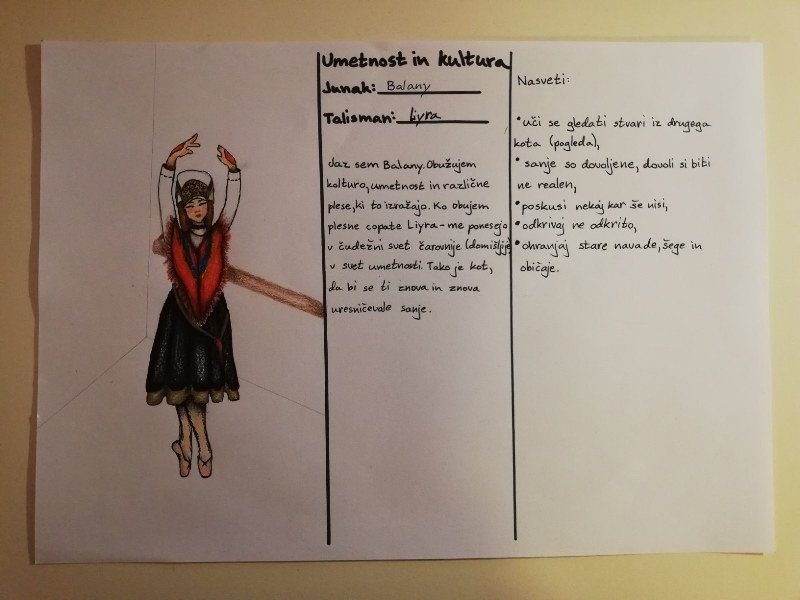 Umetnost in kultura
Junak: Balany
Talisman: Liyra
Jaz sem Balany. Obužujem
kulturo, umetnost in različne
plese, ki to izražajo. Ko obujem
plesne copate Liyra-me ponesejo
v čudežni svet čarovnije (domišljije)
v svet umetnosti. Tako je kot,
da bi se ti znova in znova
uresničevale sanje.
Nasveti:
• uči se gledati stvari iz drugega
kota (pogleda),
• sanje so dovoljene, dovoli si biti
ne realen,
• poskusi nekaj kar še nisi,
• odkrivaj ne odkrito,
• ohranjaj stare navade, šege in
običaje.